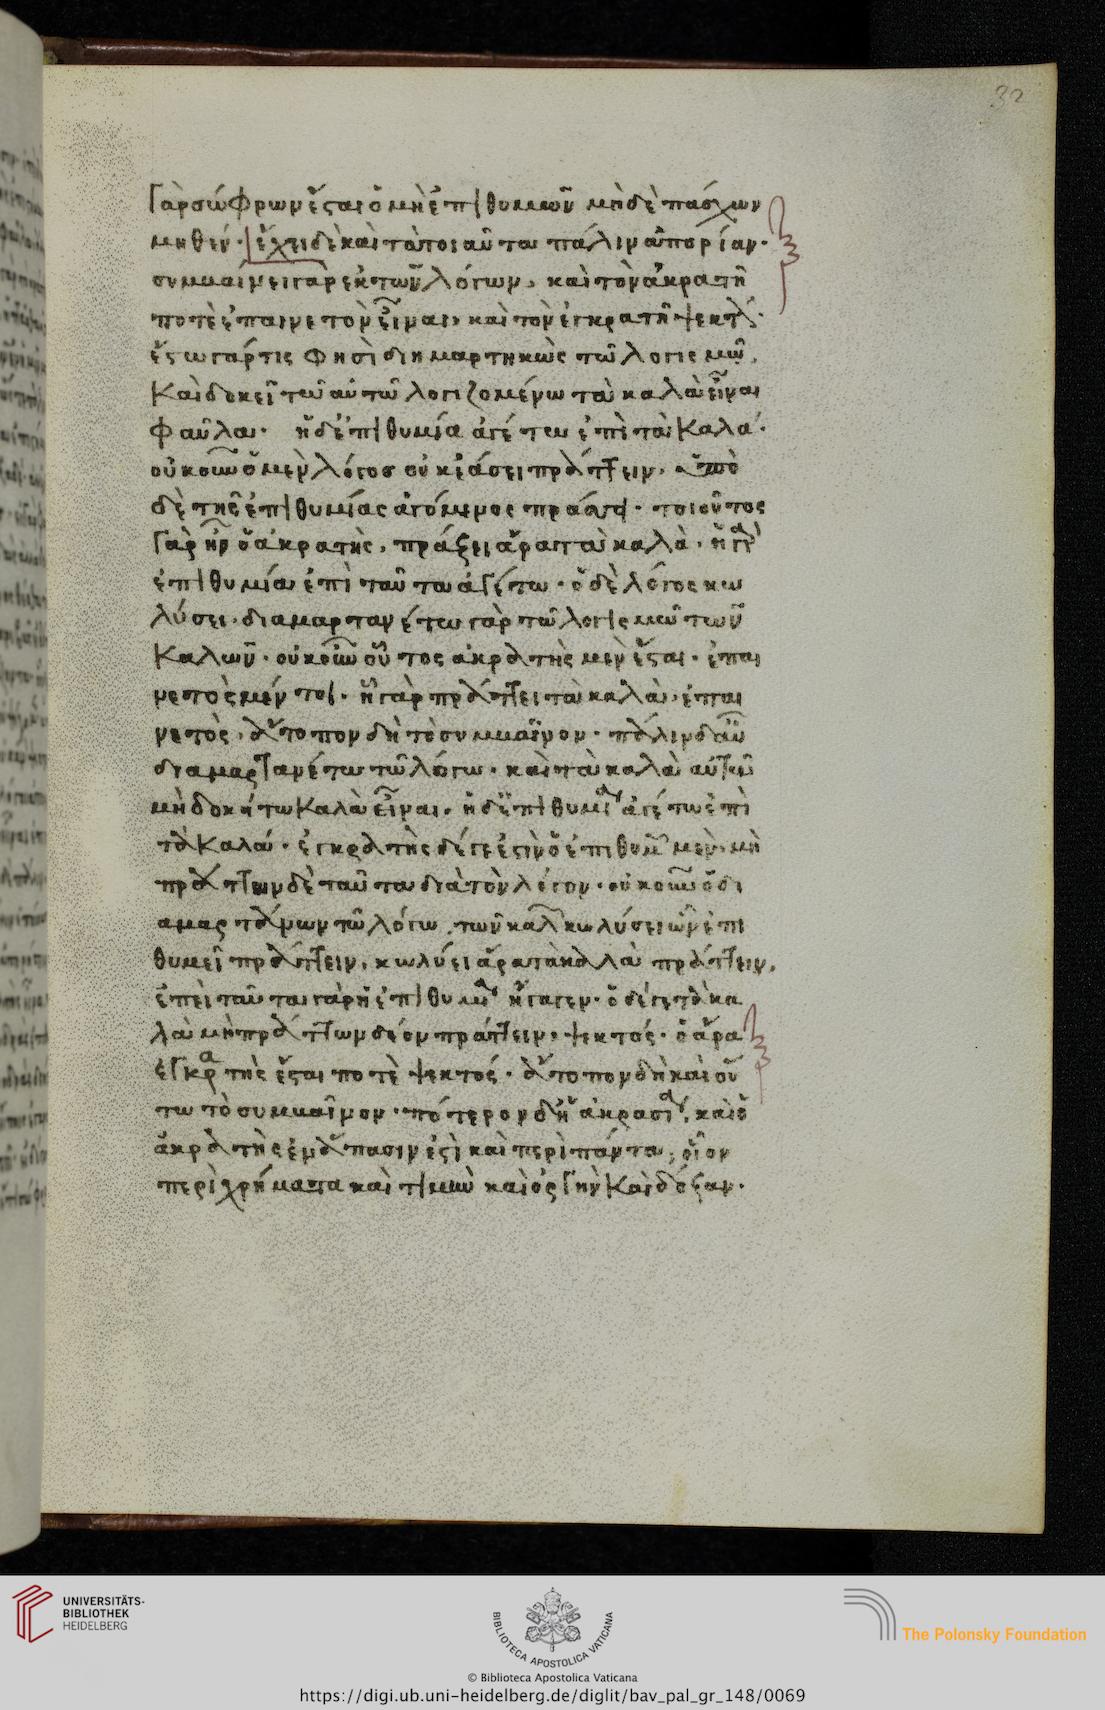 32
γὰρ σώφρων ἔσται ὁ μὴ ἐπιθυμῶν μηδὲ πάσχων
μηθέν· ἔχει δὲ καὶ τὰ τοιαῦτα πάλιν ἀπορίαν·
συμβαίνει γὰρ ἐκ τῶν λόγων, καὶ τὸν ἀκρατῆ
ποτὲ ἐπαινετὸν εἶναι, καὶ τὸν ἐγκρατῆ ψεκτόν·
ἔστω γάρ τις φησὶ διημαρτηκὼς τῶ λογισμῶ,
καὶ δοκεῖ τῶ αὐτῶ λογιζομένω τὰ καλὰ εἶναι
φαῦλα· ἡ δ' ἐπιθυμία ἀγέτω ἐπὶ τὰ καλά·
οὐκοῦν ὁ μὲν λόγος οὐκ ἐάσει πράττειν, ὑπὸ
δὲ τῆς ἐπιθυμίας ἀγόμενος πράττει· τοιοῦτος
γὰρ ἦν ὁ ἀκρατής, πράξει ἄρα τὰ καλὰ· ἡ γὰρ
ἐπιθυμία ἐπὶ ταῦτα ἀγέτω· ὁ δὲ λόγος κω
λύσει· διαμαρτανέτω γὰρ τῶ λογισμῶ τῶν
καλῶν· οὐκοῦν οὗτος ἀκρατὴς μὲν ἔσται· ἐπαι
νετὸς μέν τοι· ἧ γὰρ πράττει τὰ καλὰ, ἐπαι
νετὸς, ἄτοπον δὴ τὸ συμβαῖνον· πάλιν δ' αὖ
διαμαρτανέτω τῶ λόγω· καὶ τὰ καλὰ αὐτῶ
μὴ δοκείτω καλὰ εἶναι, ἡ δ' ἐπιθυμία ἀγέτω ἐπὶ
τὰ καλά· ἐγκρατὴς δέ γε ἐστὶν ὁ ἐπιθυμῶν μὲν, μὴ
πράττων δὲ ταῦτα διὰ τὸν λόγον· οὐκοῦν ὁ δι
αμαρτάνων τῶ λόγω τῶν καλῶν κωλύσει ὧν ἐπι
θυμεῖ πράττειν, κωλύει ἄρα τὰ καλὰ πράττειν,
ἐπεὶ ταῦτα γὰρ ἡ ἐπιθυμία ἦγαγεν· ὁ δέ γε τὰ κα
λὰ μὴ πράττων δέον πράττειν, ψεκτός· ὁ ἄρα
ἐγκρατὴς ἔσται ποτὲ ψεκτός· ἄτοπον δὴ καὶ οὕ
τω τὸ συμβαῖνον· πότερον δ' ἡ ἀκρασία, καὶ ὁ
ἀκρατὴς ἐν ἅπασιν ἐστὶ καὶ περὶ πάντα, οἷον
περὶ χρήματα καὶ τιμὴν καὶ ὀργὴν καὶ δόξαν·
UNIVERSITÄTS-
BIBLIOTHEK
HEIDELBERG
BIBLIOTECA APOSTOLICA VATICANA
The Polonsky Foundation
© Biblioteca Apostolica Vaticana
https://digi.ub.uni-heidelberg.de/diglit/bav_pal_gr_148/0069